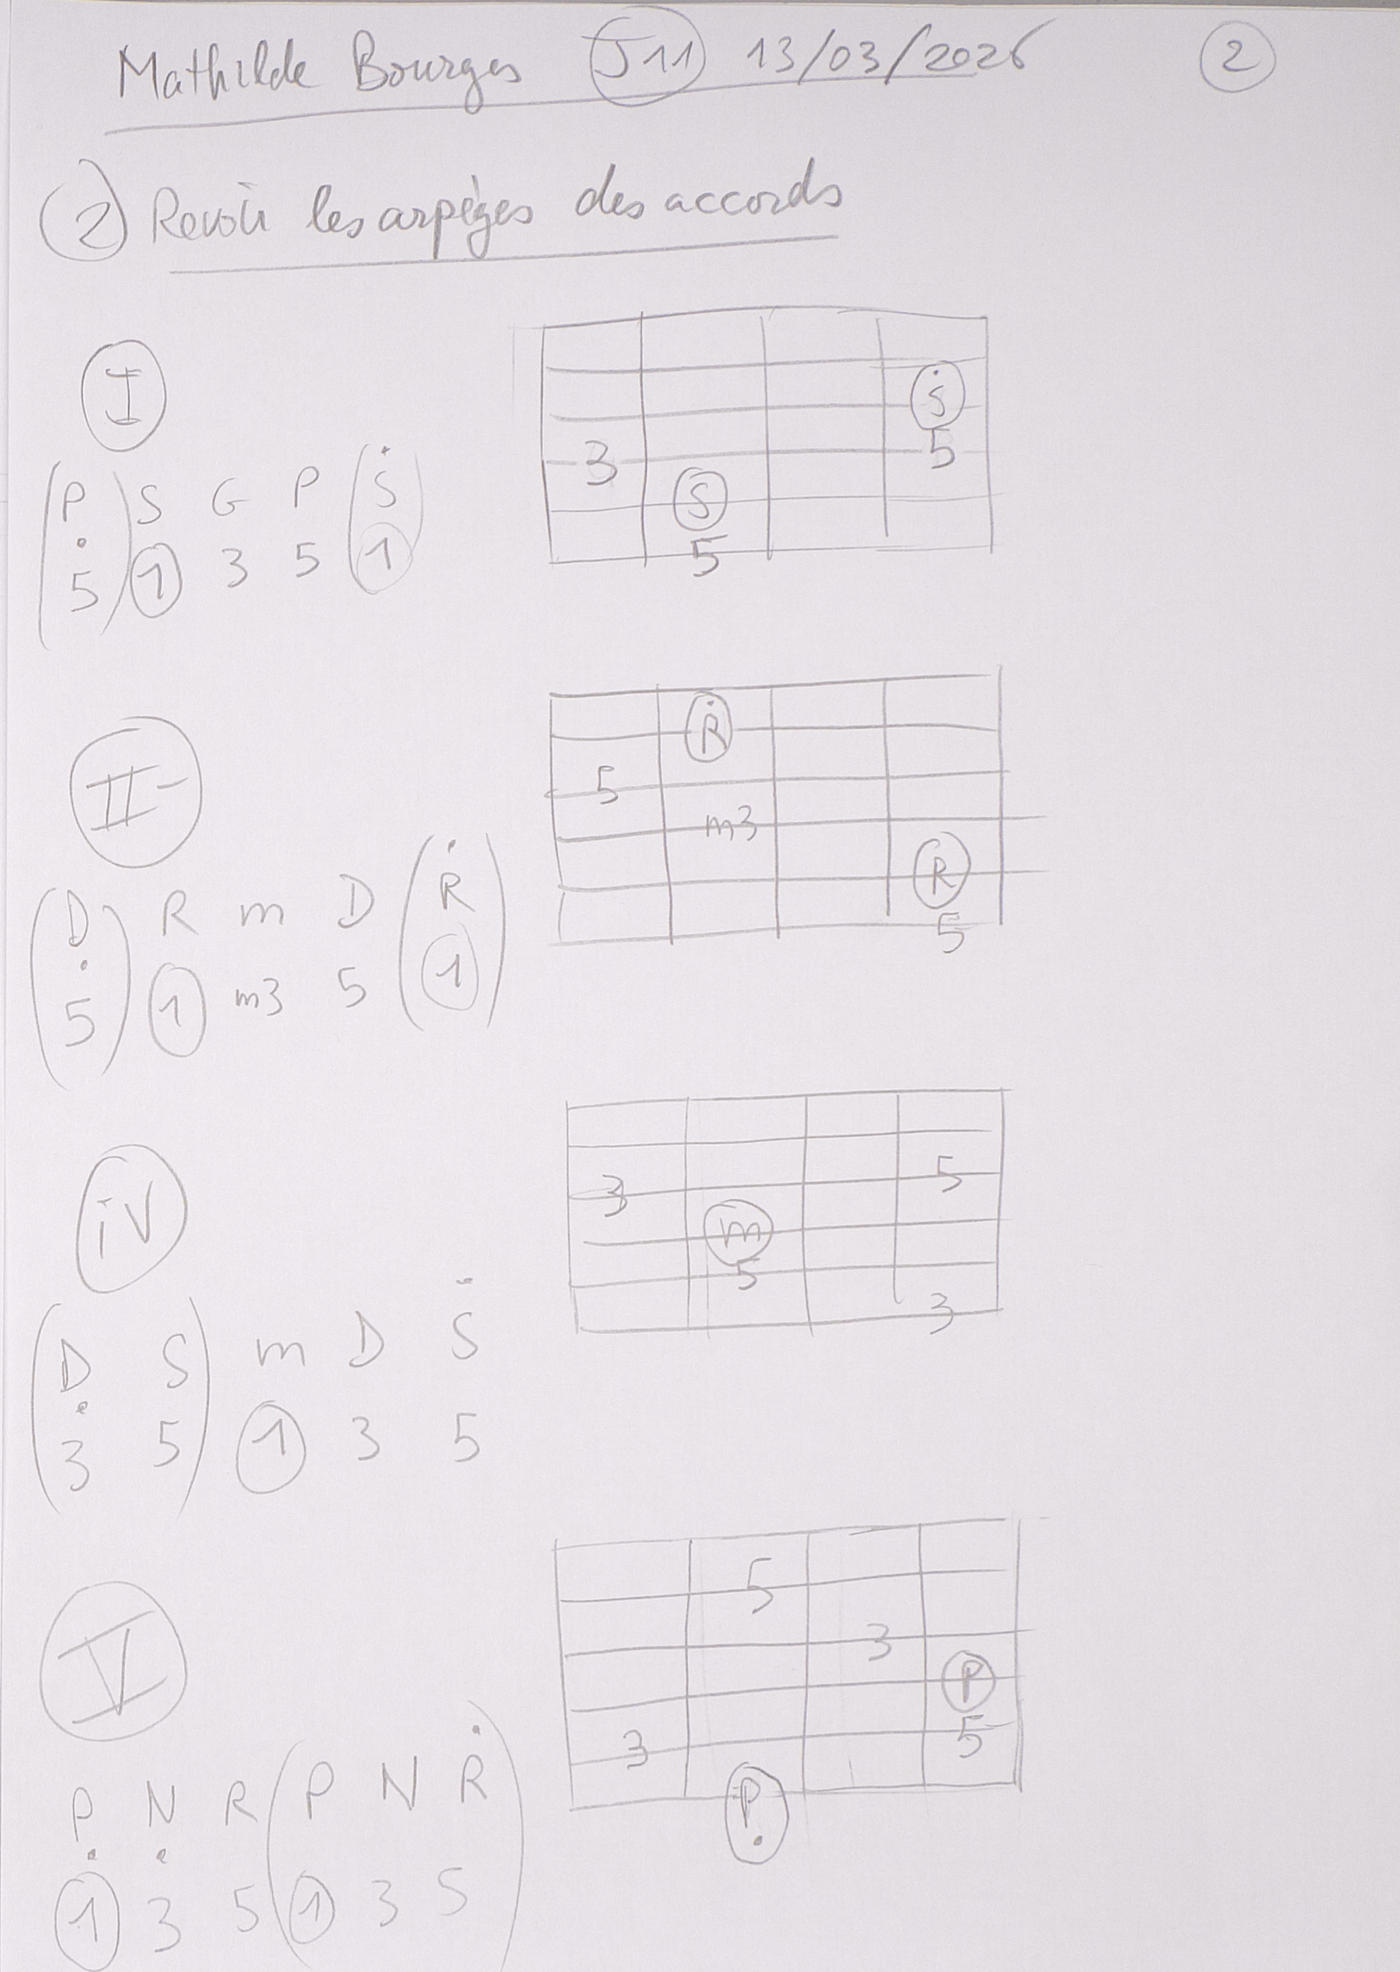 Mathilde Bourges J11 13/03/2026 2
2 Revoir les arpèges des accords
I
P S G P S
5 1 3 5 1
S
3 5
S
5
II-
D R m D R
5 1 m3 5 1
R
5
m3
R
5
iV
D S m D S
3 5 1 3 5
3 5
m
5
3
V
P N R P N R
1 3 5 1 3 5
5
3
P
3 5
P